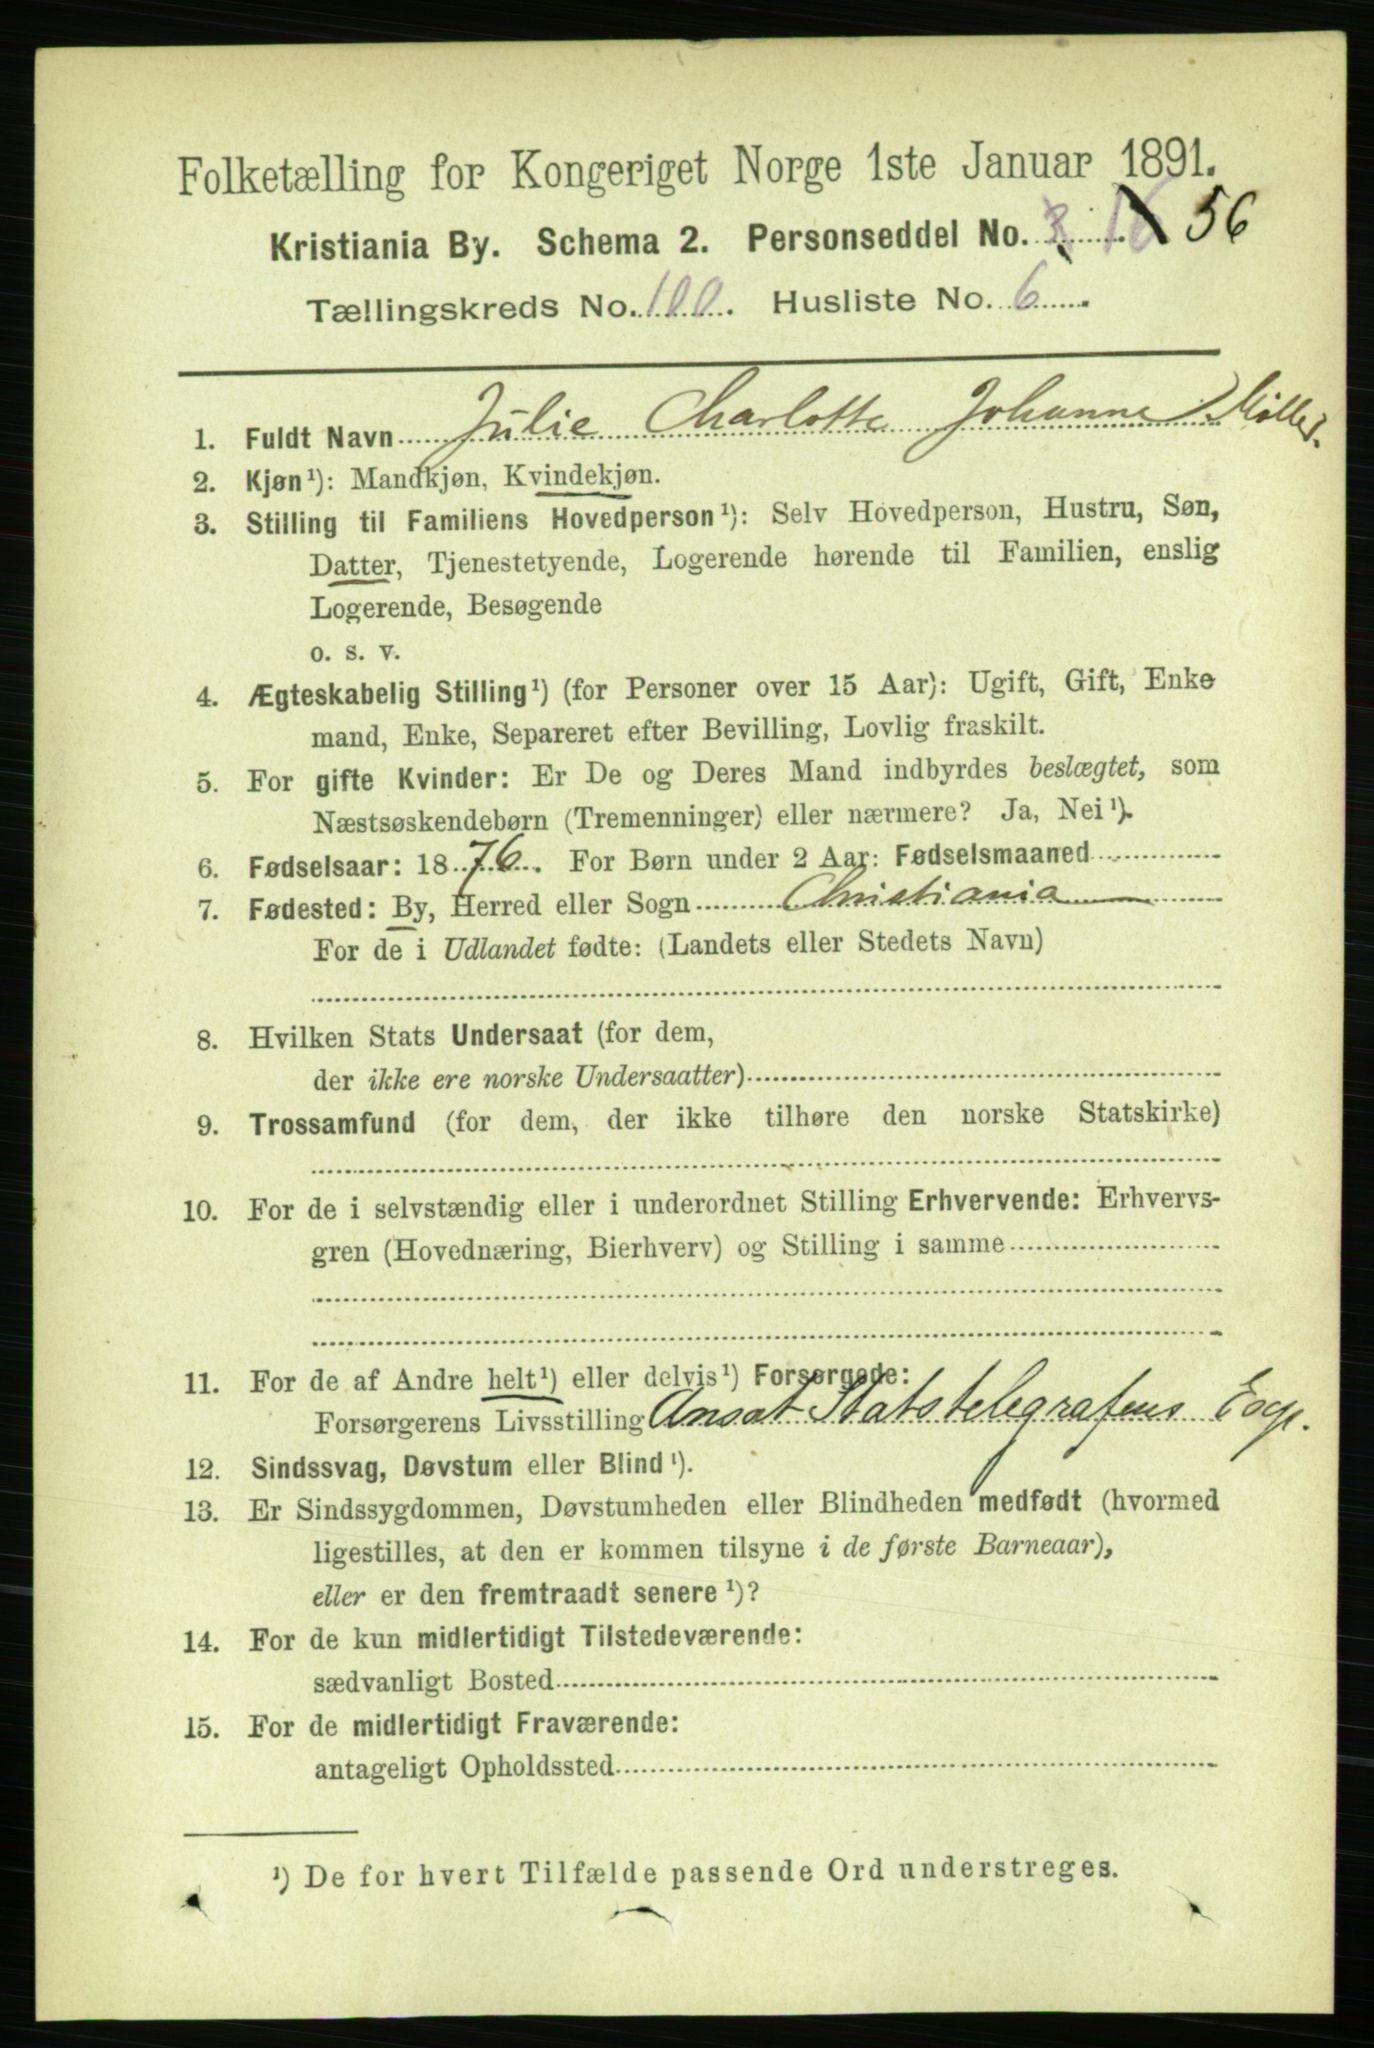 Folketælling for Kongeriget Norge 1ste Januar 1891.
Kristiania By. Schema 2. Personseddel No. 3 16 56
Tællingskreds No. 100. Husliste No. 6
1. Fuldt Navn Julie Charlotte Johanne Møller.
2. Kjøn¹): Mandkjøn, Kvindekjøn.
3. Stilling til Familiens Hovedperson¹): Selv Hovedperson, Hustru, Søn,
Datter, Tjenestetyende, Logerende hørende til Familien, enslig
Logerende, Besøgende
o. s. v.
4. Ægteskabelig Stilling¹) (for Personer over 15 Aar): Ugift, Gift, Enke-
mand, Enke, Separeret efter Bevilling, Lovlig fraskilt.
5. For gifte Kvinder: Er De og Deres Mand indbyrdes beslægtet, som
Næstsøskendebørn (Tremenninger) eller nærmere? Ja, Nei¹).
6. Fødselsaar: 1876. For Børn under 2 Aar: Fødselsmaaned
7. Fødested: By, Herred eller Sogn Christiania
For de i Udlandet fødte: (Landets eller Stedets Navn)
8. Hvilken Stats Undersaat (for dem,
der ikke ere norske Undersaatter)
9. Trossamfund (for dem, der ikke tilhøre den norske Statskirke)
10. For de i selvstændig eller i underordnet Stilling Erhvervende: Erhvervs-
gren (Hovednæring, Bierhverv) og Stilling i samme
11. For de af Andre helt¹) eller delvis¹) Forsørgede:
Forsørgerens Livsstilling Ansat Statstelegrafens Exp.
12. Sindssvag, Døvstum eller Blind¹).
13. Er Sindssygdommen, Døvstumheden eller Blindheden medfødt (hvormed
ligestilles, at den er kommen tilsyne i de første Barneaar),
eller er den fremtraadt senere¹)?
14. For de kun midlertidigt Tilstedeværende:
sædvanligt Bosted
15. For de midlertidigt Fraværende:
antageligt Opholdssted
¹) De for hvert Tilfælde passende Ord understreges.